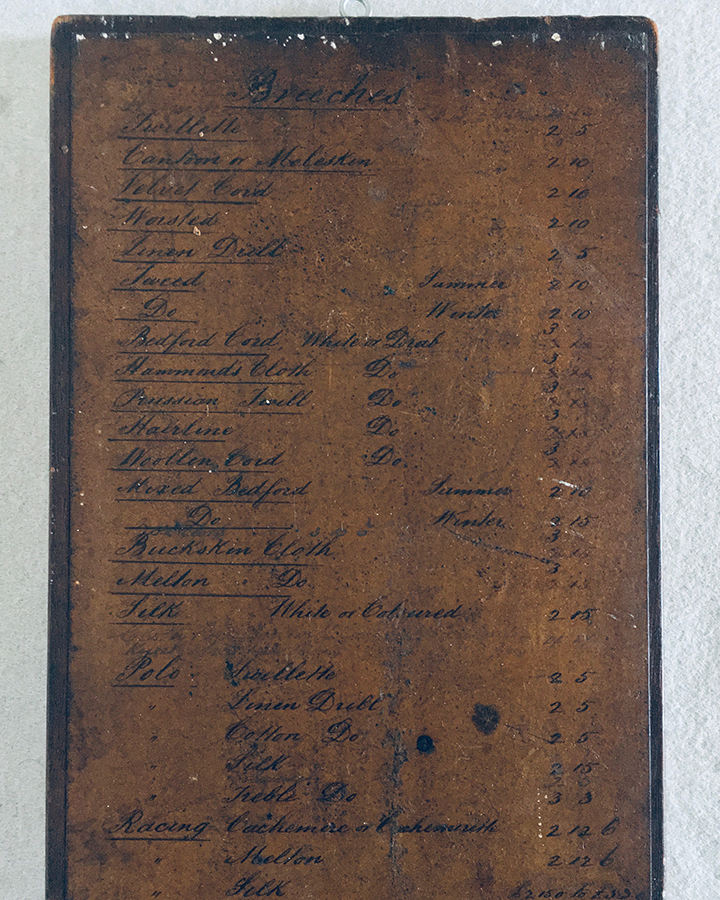 Breeches
Twillette 2 5
Cantoon or Moleskin 2 10
Velvet Cord 2 10
Worsted 2 10
Linen Drill 2 5
Tweed Summer 2 10
Do Winter 2 10
Bedford Cord White or Drab 3
Hammond's Cloth Do 3
Russian Twill Do 3
Hairline Do 3
Woollen Cord Do 3
Mixed Bedford Summer 2 10
Do Winter 2 15
Buckskin Cloth 3
Melton Do 3
Silk White or Coloured 2 15
Polo Twillette 2 5
" Linen Drill 2 5
" Cotton Do 2 5
" Silk 2 15
" Treble Do 3 3
Racing Cachemere or 2 12 6
" Melton 2 12 6
" Silk